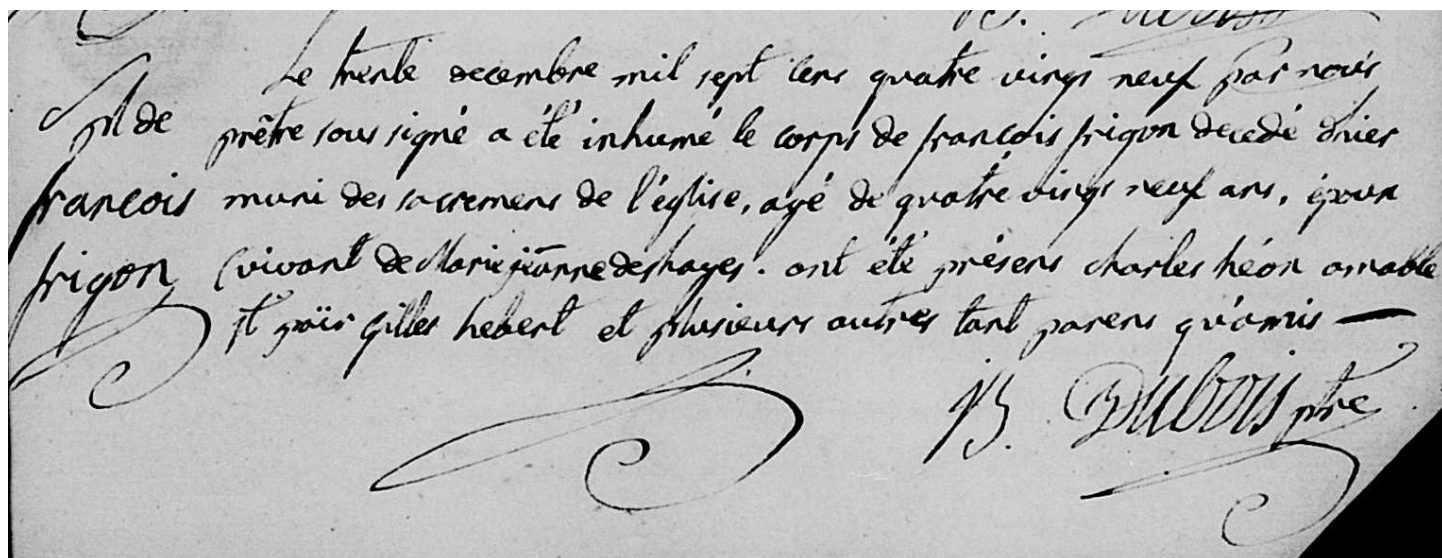 Le trente decembre mil sept cens quatre vings neuf par nous
prêtre sous signé a été inhumé le corps de françois frigon decedé d'hier
muni des sacremens de l'église, agé de quatre vings neuf ans, époux
vivant de Marie jeanne deshayes. ont été présens charles héon amable
st païr gilles hebert et plusieurs autres tant parens qu'amis —
B. Dubois ptre
de
françois
frigon